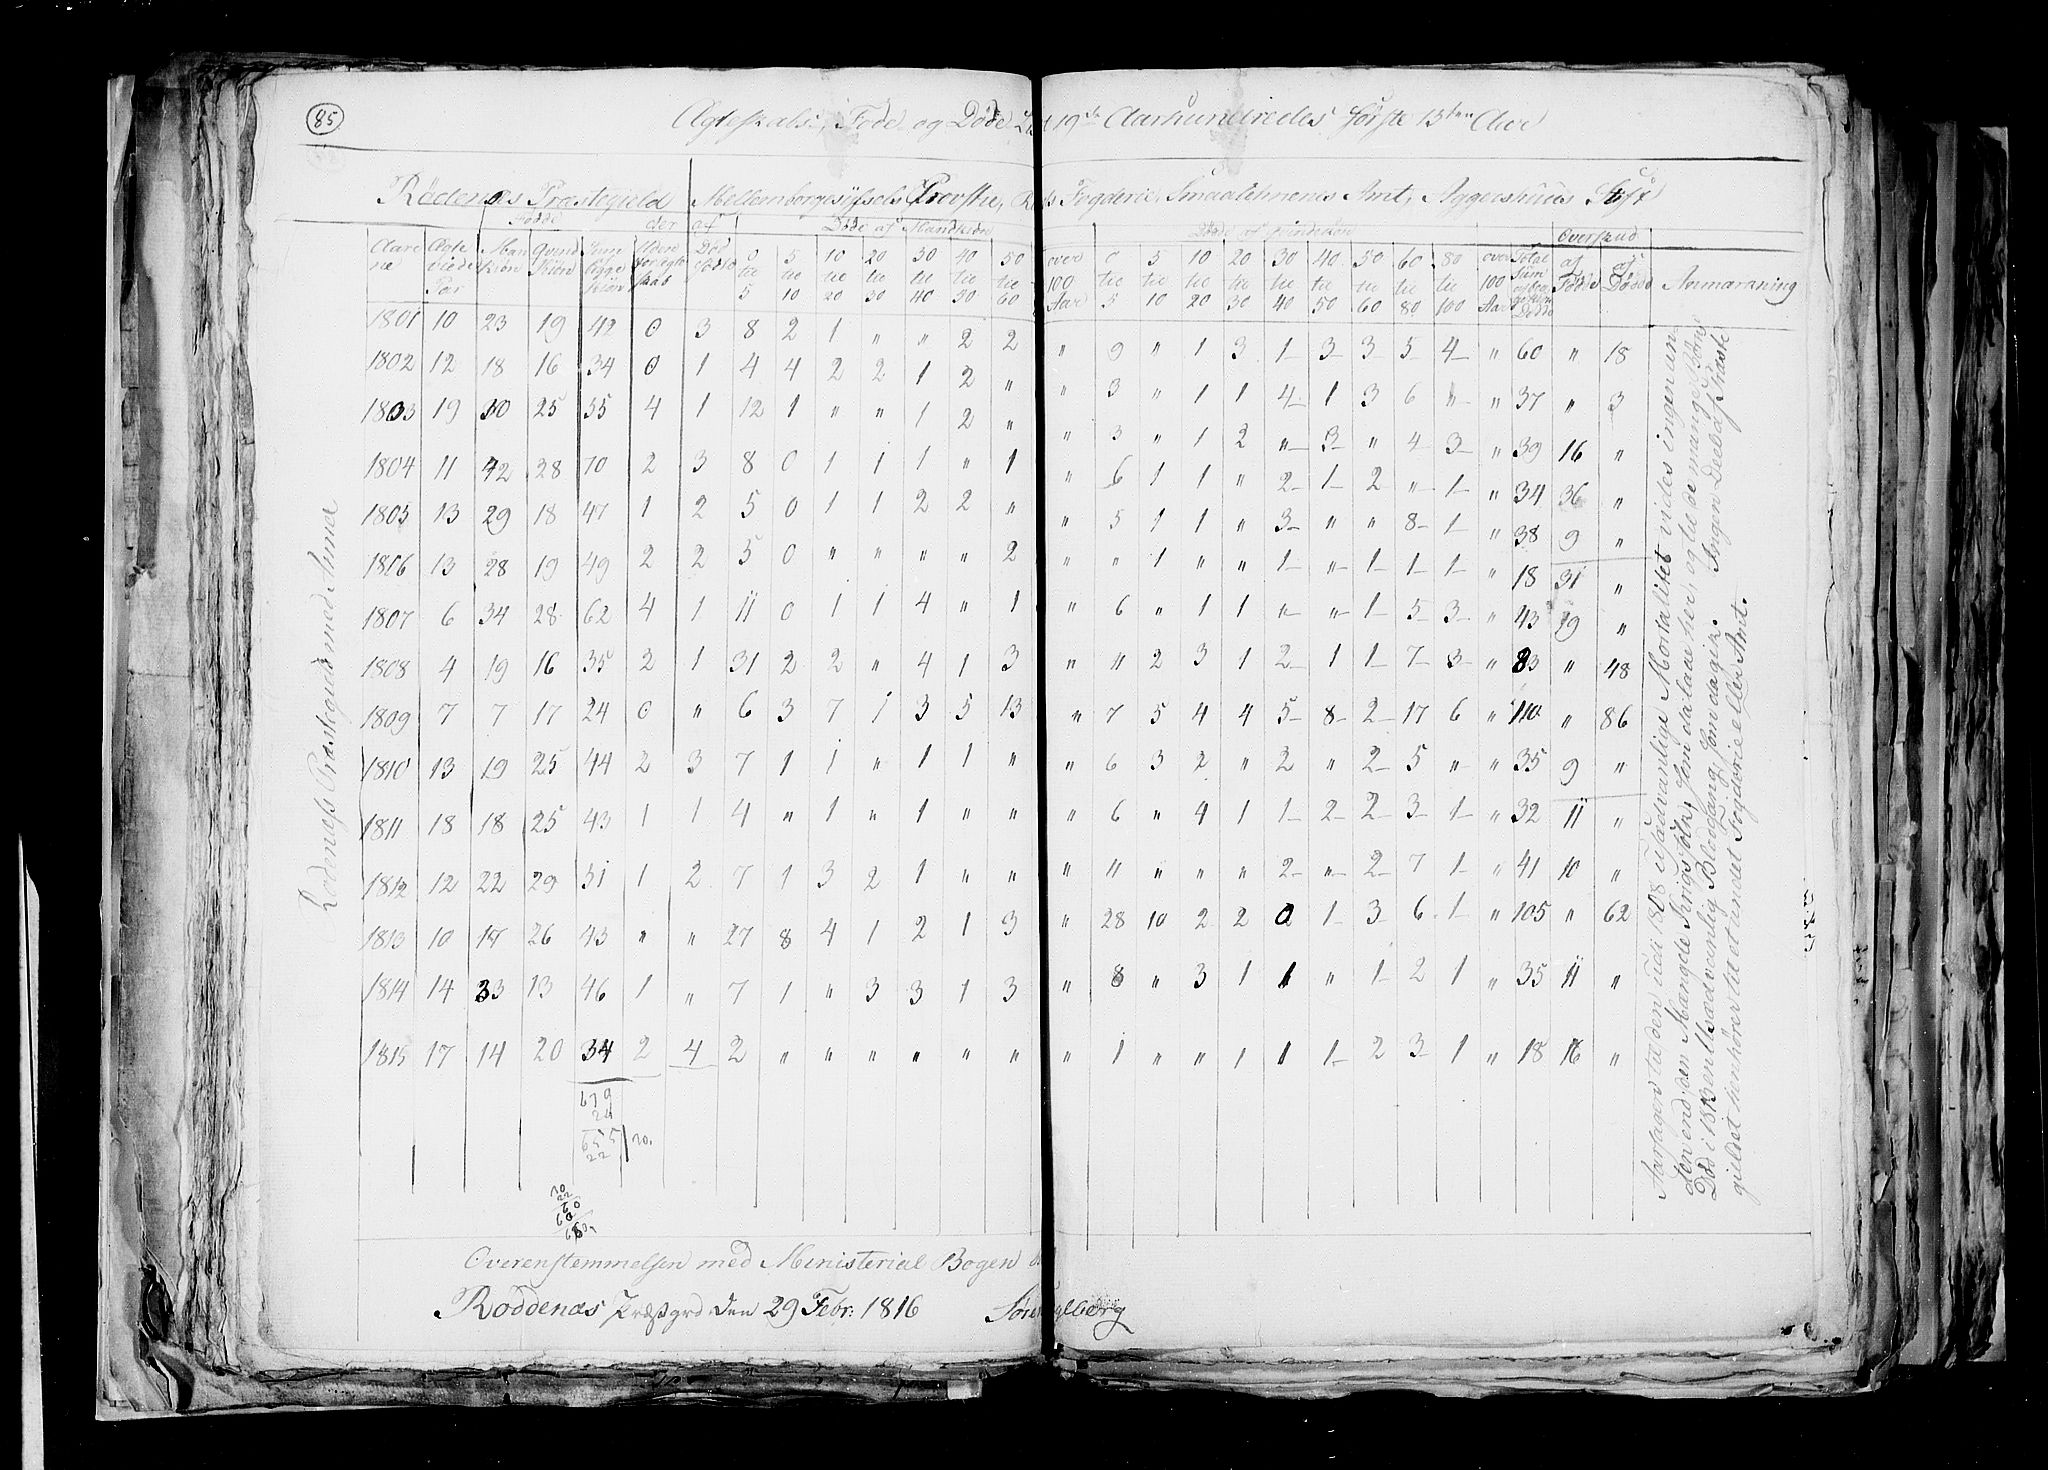 85
Ægteskabs, Føde og Døde 19de Aarhundredes første 15ten Aar
Rödenæs Præstegield Mellemborgesyssels Provstie, Fogderie, Smaalehnenes Amt, Aggershuus Stift
Födde der af Døde af Mandkiön Döde af Qvindekiön Overskud
Aarene Ægteviede Par Mandkiön Qvindekiön Summa begge Kiön Uden for Ægteskab Dödfödte 0 til 5 5 til 10 10 til 20 20 til 30 30 til 40 40 til 50 50 til 60 over 100 Aar 0 til 5 5 til 10 10 til 20 20 til 30 30 til 40 40 til 50 50 til 60 60 til 80 80 til 100 over 100 Aar Sum Döde af Födde af Dödde Anmærkning
1801 10 23 19 42 0 3 8 2 1 " " 2 2 " 9 " 1 3 1 3 3 5 4 " 60 " 18
1802 12 18 16 34 0 1 4 4 2 2 1 2 " " 3 " 1 1 4 1 3 6 " " 37 " 3
1803 19 30 25 55 4 1 12 1 " " 1 2 " " 3 " 1 2 " 3 " 4 3 " 39 16 "
1804 11 42 28 70 2 3 8 0 1 1 1 " 1 " 6 1 1 " 2 1 2 " 1 " 34 36 "
1805 13 29 18 47 1 2 5 0 1 1 2 2 " " 5 1 1 " 3 " " 8 1 " 38 9 "
1806 13 28 19 49 2 2 5 0 " " " " 2 " " 1 " " 1 " 1 1 1 " 18 31 "
1807 6 34 28 62 4 1 11 0 1 1 4 " 1 " 6 " 1 1 " " 1 5 3 " 43 19 "
1808 4 19 16 35 2 1 31 2 2 " 4 1 3 " 11 2 3 1 2 1 1 7 3 " 83 " 48
1809 7 7 17 24 0 " 6 3 7 1 3 5 13 " 7 5 4 4 5 8 2 17 6 " 110 " 86
1810 13 19 25 44 2 3 7 1 1 " 1 1 " " 6 3 2 " 2 " 2 5 " " 35 9 "
1811 18 18 25 43 1 1 4 " 1 " 1 " " " 6 " 4 1 1 2 2 3 1 " 32 11 "
1812 12 22 29 51 1 2 7 1 3 2 1 " " " 11 " " " 2 " 2 7 1 " 41 10 "
1813 10 17 26 43 " " 27 8 4 1 2 1 3 " 28 10 2 2 0 1 3 6 1 " 105 " 62
1814 14 33 13 46 1 " 7 1 " 3 3 1 3 " 8 " 3 1 1 " 1 2 1 " 35 11 "
1815 17 14 20 34 2 4 2 " " " " " " " 1 " " 1 1 1 2 3 1 " 18 16 "
679
24
655 20.
22
20
22
660
Rödenæss Præstegield
Aarsager til den udi 1808 usædvanlige Mortalitet vides ingen uden end den Mængde Krigsfolk, som da laae her, og til de mange som Död i 1813 en usædvanlig Blodgang, som dagir. Ingen Deel af Præstegieldet henhörer til et andet Fogderie eller Amt.
Overenstemmelsen med Ministerial Bogen
Röddenæs Præstgrd den 29 Febr: 1816